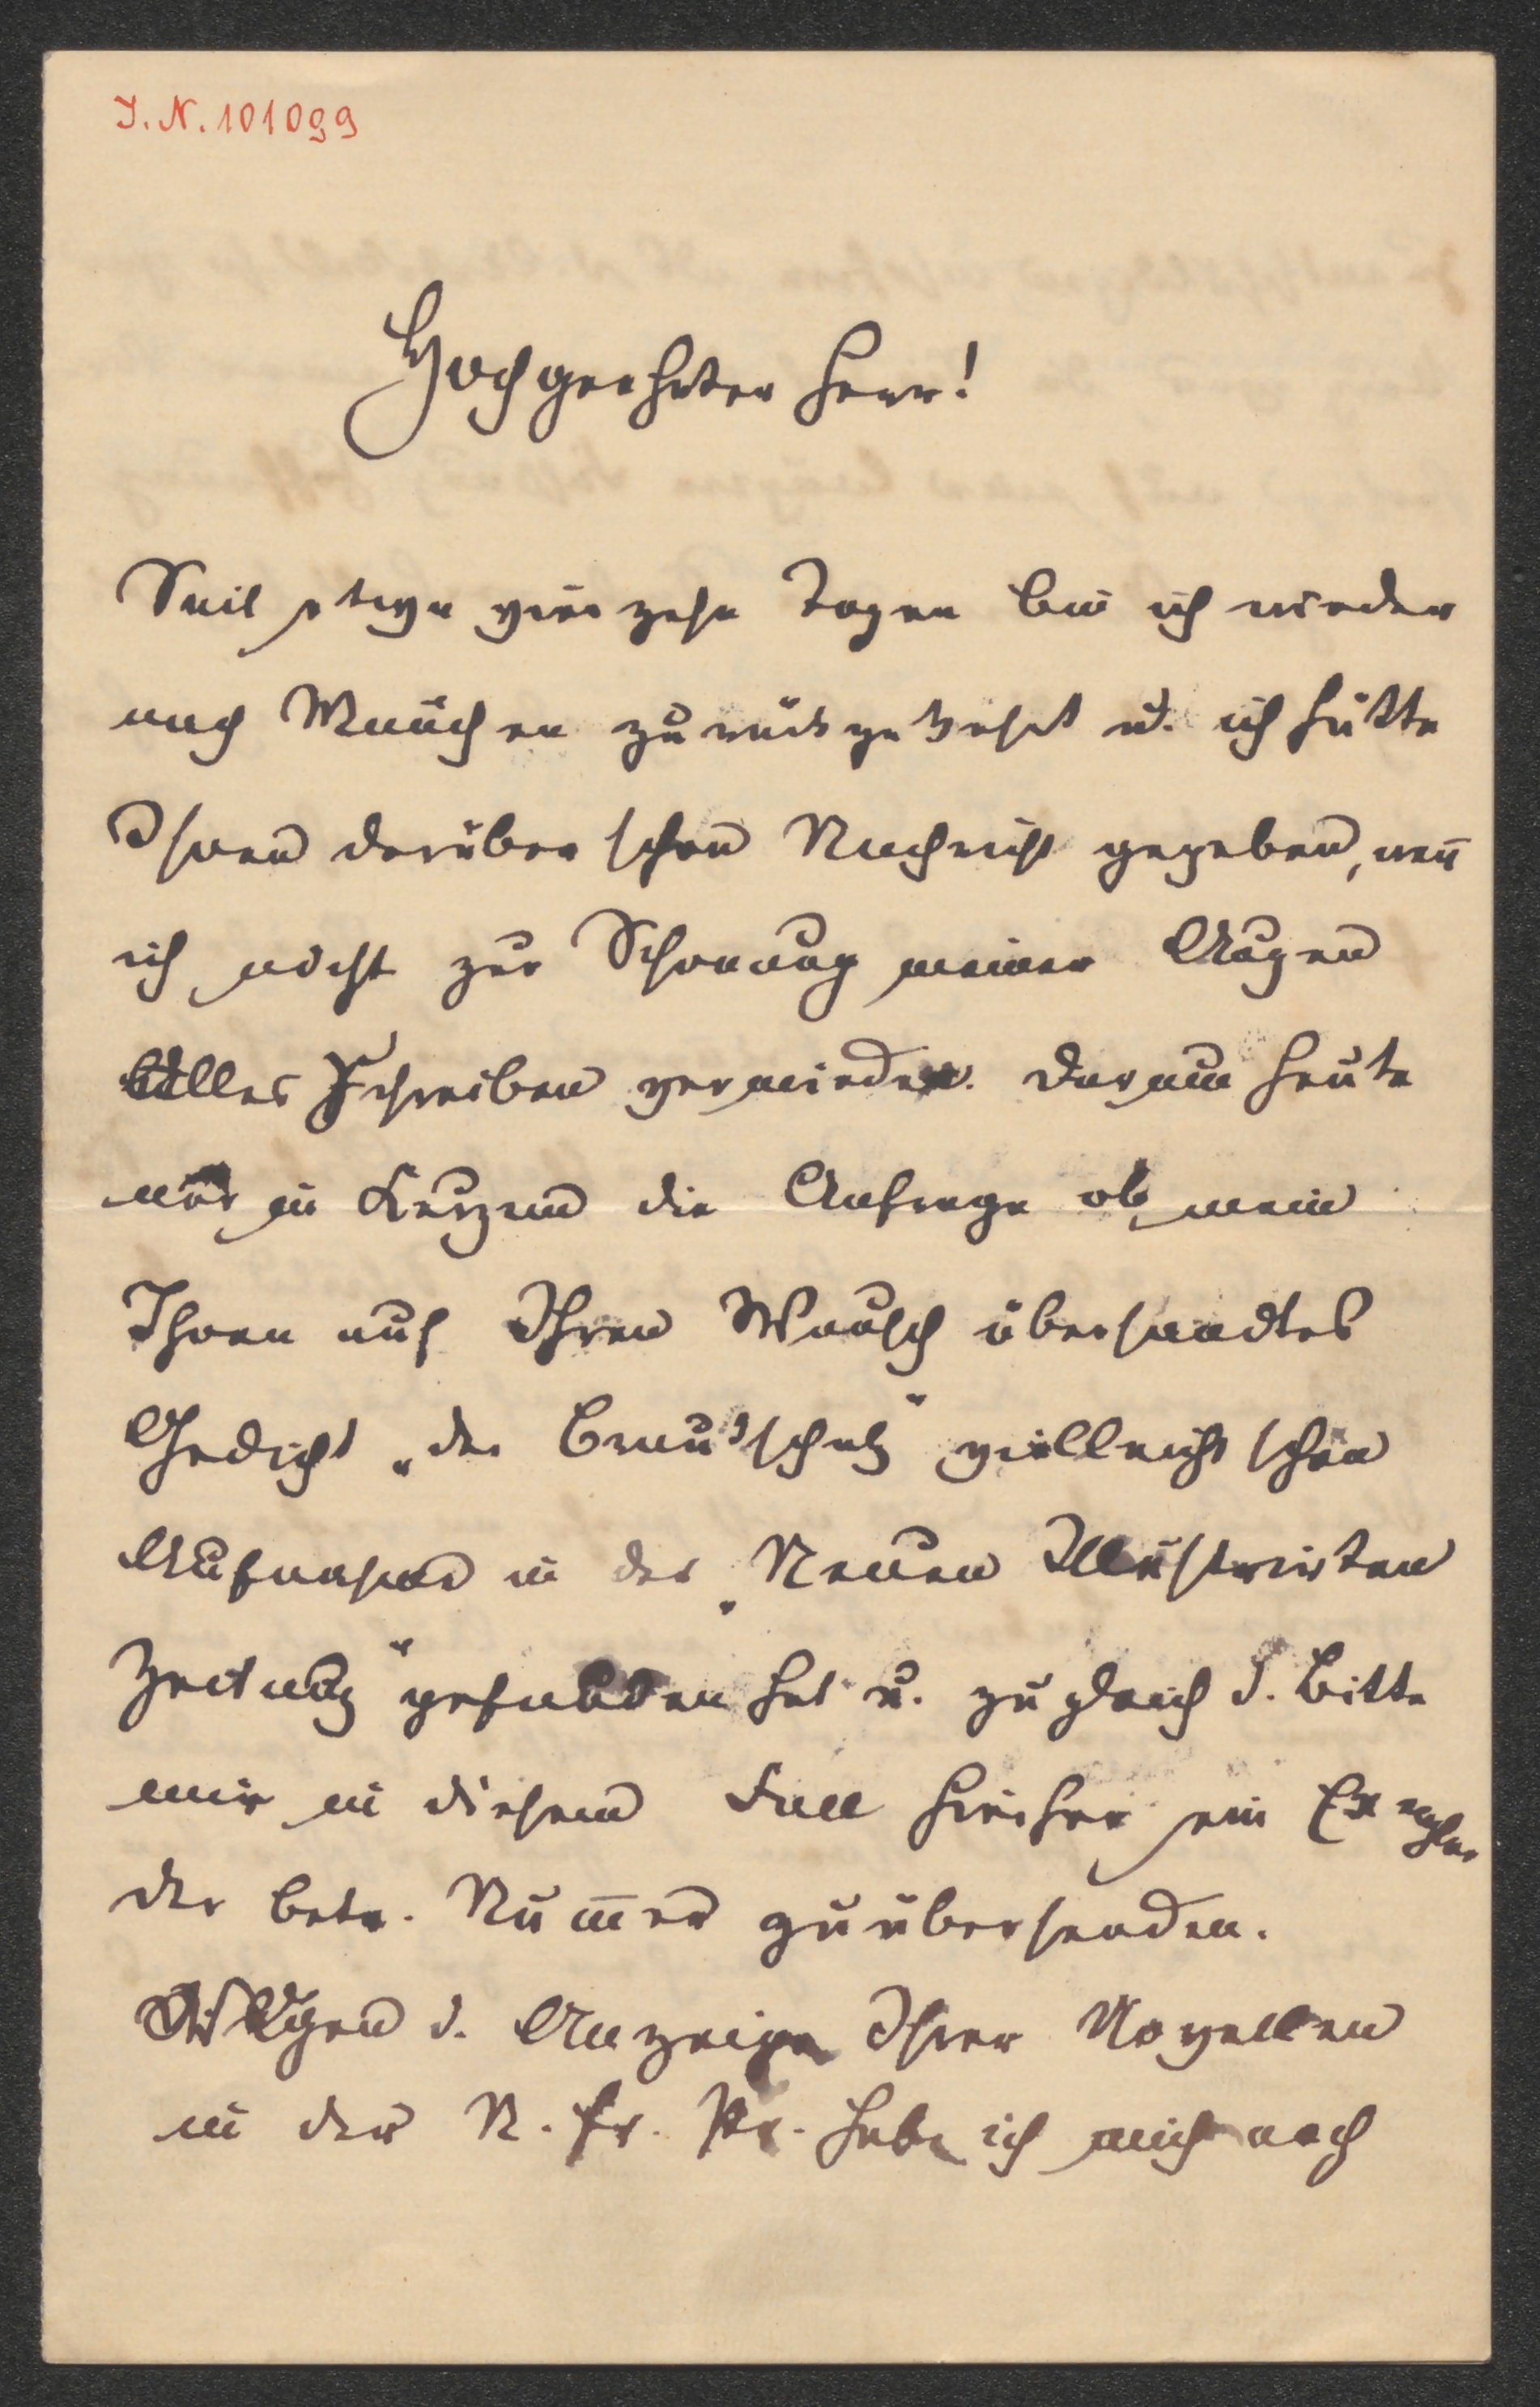 I. N. 101099
Hochgeehrter Herr!
Seit etwa vierzehn Tagen bin ich wieder
nach München zurückgekehrt u. ich hätte
Ihnen darüber schon Nachricht gegeben, weñ
ich nicht zur Schonung meiner Augen
Alles Schreiben vermieden. Darum heute
nur in Kurzem die Anfrage ob mein
Ihnen auf Ihren Wunsch übersandtes
Gedicht „der Brautschatz“ vielleicht schon
Aufnahme in der „Neuen Illustrirten
Zeitung“ gefunden hat u. zugleich d. Bitte
mir in diesem Fall hieher ein Exemplar
der betr. Num̄er zu übersenden.
Wegen d. Anzeige Ihrer Novellen
in der N. fr. Pr. habe ich mich nach